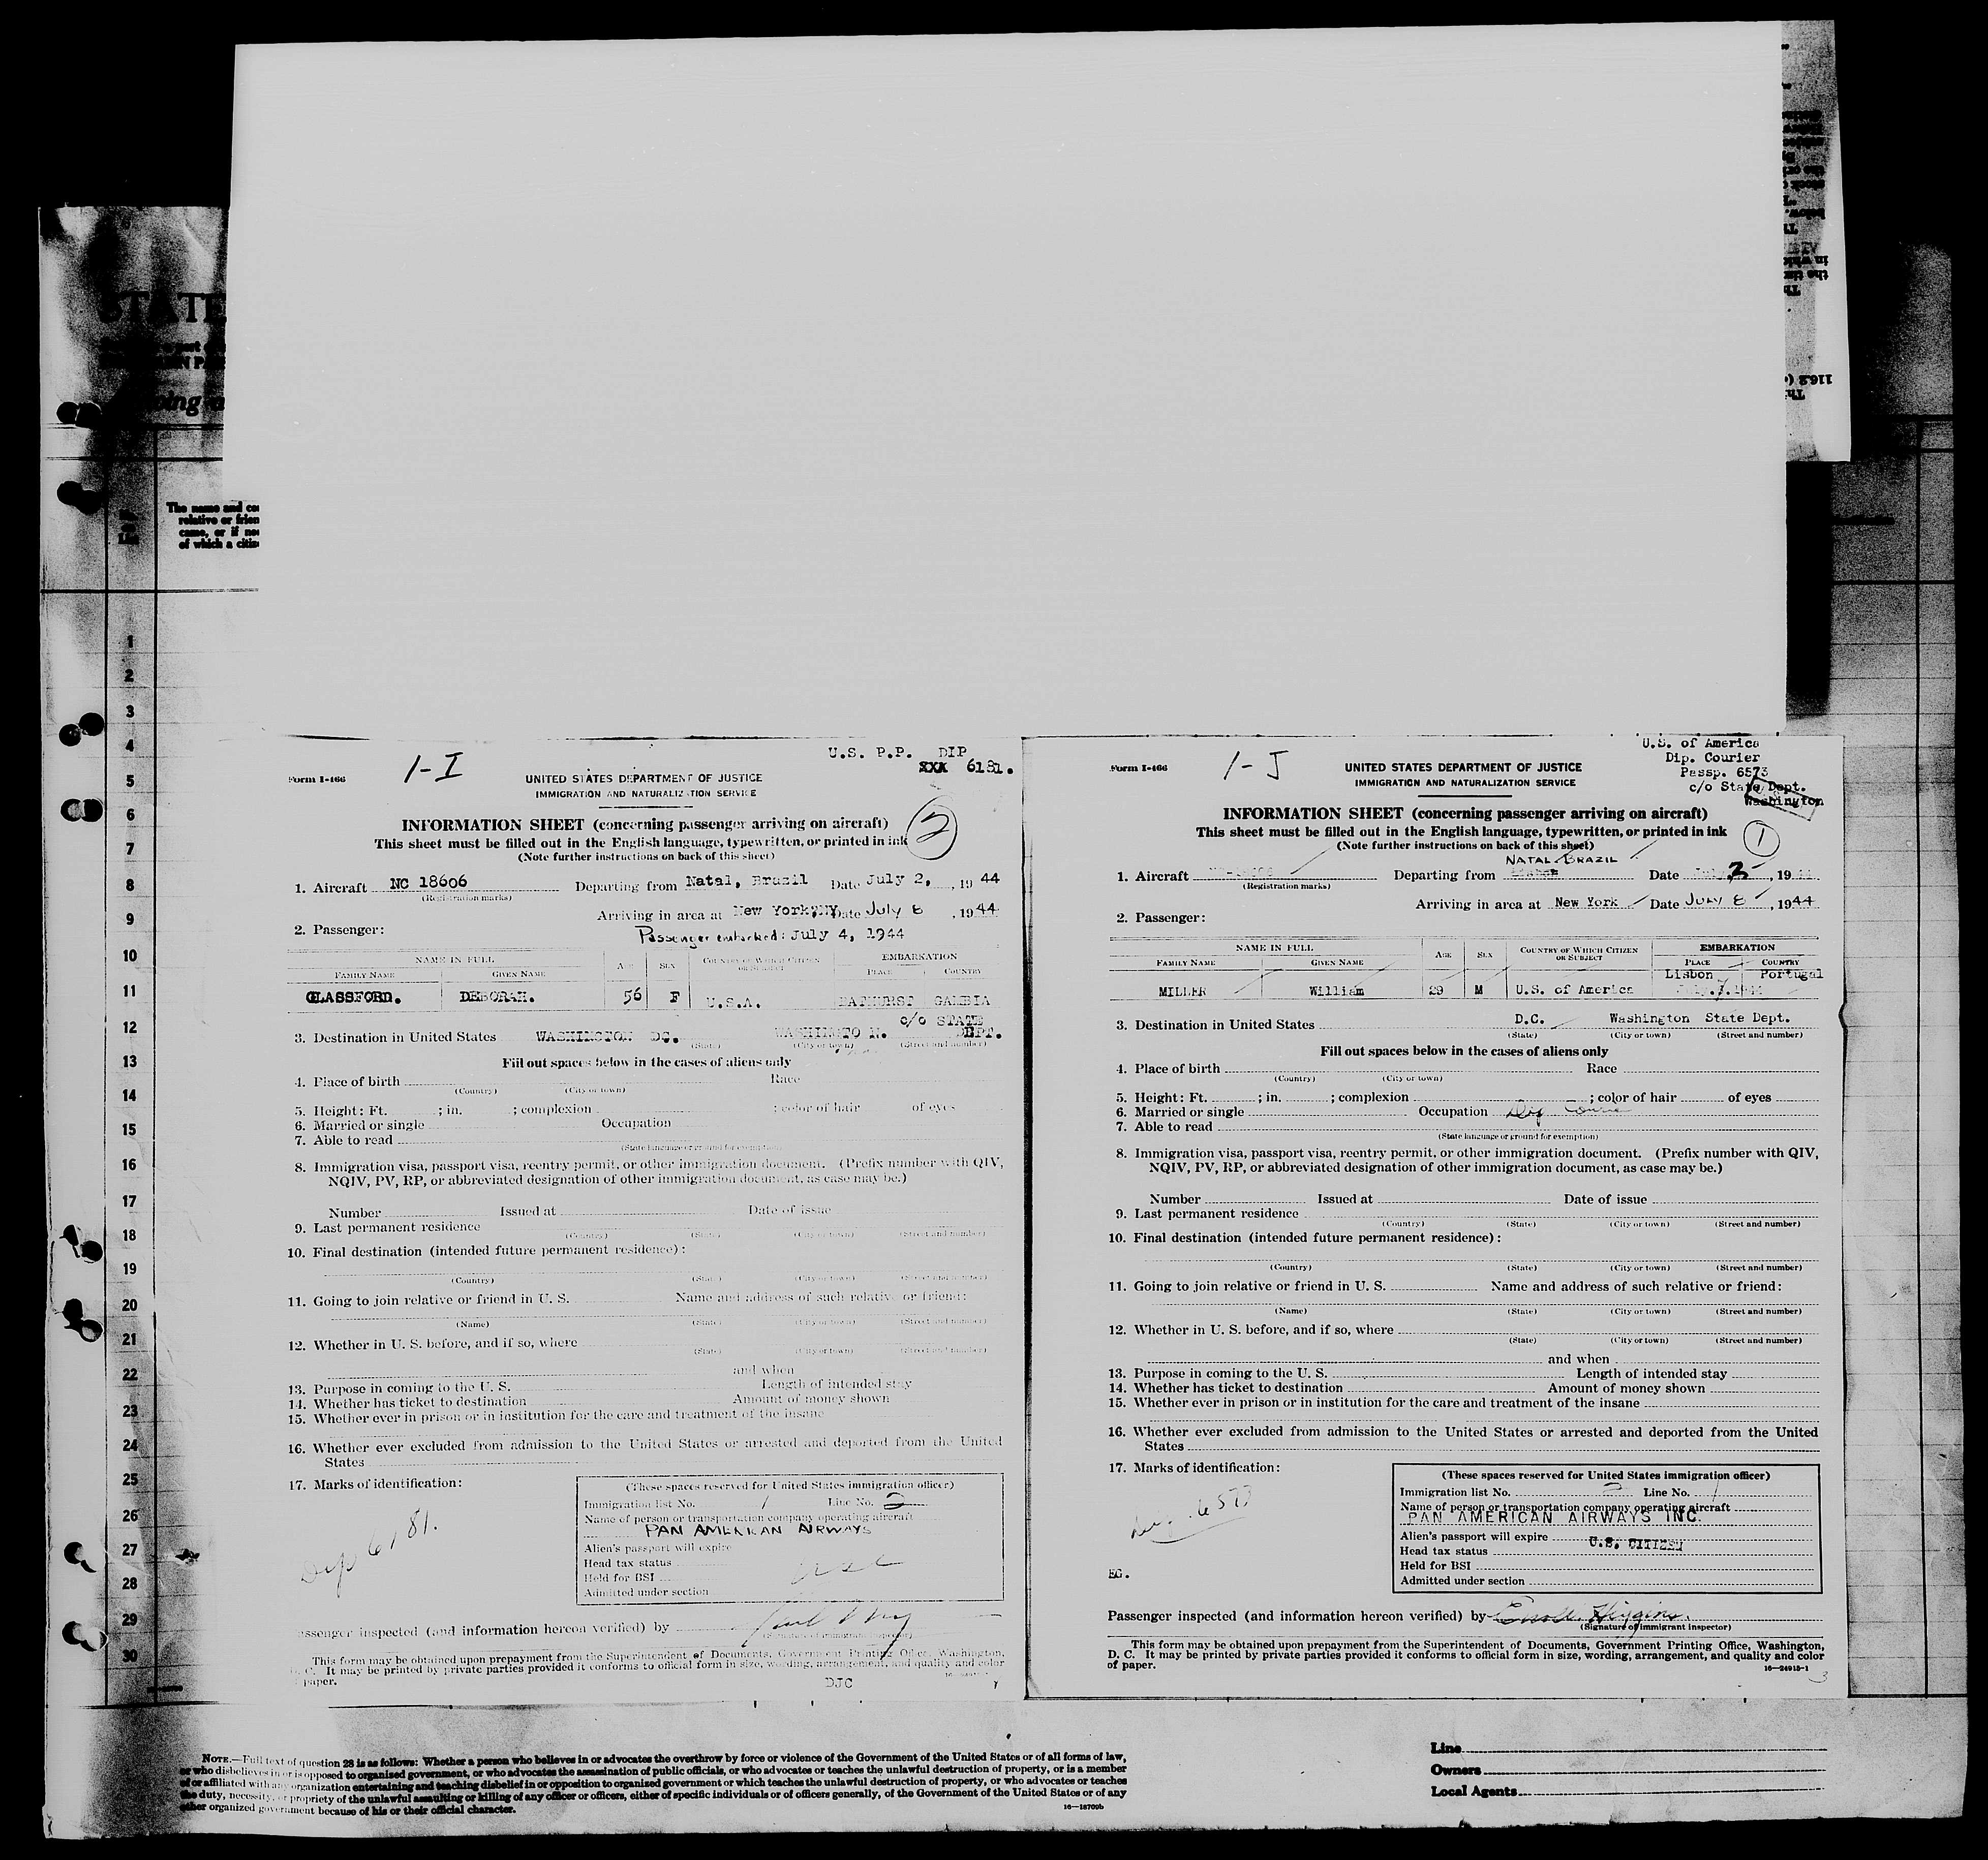 STATE
The name and co
relative or frien
came, or if no
of which a citiz
1
2
3
4
5
6
7
8
9
10
11
12
13
14
15
16
17
18
19
20
21
22
23
24
25
26
27
28
29
30
U.S. P.P. DIP
1-I
XXX 6181.
Form I-466
UNITED STATES DEPARTMENT OF JUSTICE
IMMIGRATION AND NATURALIZATION SERVICE
INFORMATION SHEET (concerning passenger arriving on aircraft)
2
This sheet must be filled out in the English language, typewritten, or printed in ink
(Note further instructions on back of this sheet)
1. Aircraft NC 18606 Departing from Natal, Brazil Date July 2, , 19 44
(Registration marks)
Arriving in area at New York, NY Date July 8 , 19 44
2. Passenger:
Passenger embarked: July 4, 1944
NAME IN FULL AGE SEX COUNTRY OF WHICH CITIZEN OR SUBJECT EMBARKATION
FAMILY NAME GIVEN NAME PLACE COUNTRY
GLASSFORD. DEBORAH. 56 F U.S.A. BATHURST GAMBIA
c/o STATE
3. Destination in United States WASHINGTON DC. WASHINGTO N. DEPT.
(State) (City or town) (Street and number)
Fill out spaces below in the cases of aliens only
4. Place of birth Race
(Country) (City or town)
5. Height: Ft. ; in. ; complexion ; color of hair of eyes
6. Married or single Occupation
7. Able to read
(State language or ground for exemption)
8. Immigration visa, passport visa, reentry permit, or other immigration document. (Prefix number with QIV,
NQIV, PV, RP, or abbreviated designation of other immigration document, as case may be.)
Number Issued at Date of issue
9. Last permanent residence
(Country) (State) (City or town) (Street and number)
10. Final destination (intended future permanent residence):
(Country) (State) (City or town) (Street and number)
11. Going to join relative or friend in U. S. Name and address of such relative or friend:
(Name) (State) (City or town) (Street and number)
12. Whether in U. S. before, and if so, where
(State) (City or town) (Street and number)
and when
13. Purpose in coming to the U. S. Length of intended stay
14. Whether has ticket to destination Amount of money shown
15. Whether ever in prison or in institution for the care and treatment of the insane
16. Whether ever excluded from admission to the United States or arrested and deported from the United
States
17. Marks of identification:
(These spaces reserved for United States immigration officer)
Immigration list No. 1 Line No. 2
Name of person or transportation company operating aircraft
PAN AMERICAN AIRWAYS
Alien's passport will expire
Head tax status usc
Held for BSI
Admitted under section
Dip 6181.
assenger inspected (and information hereon verified) by
(Signature of immigrant inspector)
This form may be obtained upon prepayment from the Superintendent of Documents, Government Printing Office, Washington,
D. C. It may be printed by private parties provided it conforms to official form in size, wording, arrangement, and quality and color
paper.
DJC
U.S. of America
1-J
Dip. Courier
Passp. 6573
c/o State Dept.
Washington
Form I-466
UNITED STATES DEPARTMENT OF JUSTICE
IMMIGRATION AND NATURALIZATION SERVICE
INFORMATION SHEET (concerning passenger arriving on aircraft)
This sheet must be filled out in the English language, typewritten, or printed in ink
1
(Note further instructions on back of this sheet)
NATAL BRAZIL
1. Aircraft Departing from Date July 2 , 19 44
(Registration marks)
Arriving in area at New York Date JULY 8 , 19 44
2. Passenger:
NAME IN FULL AGE SEX COUNTRY OF WHICH CITIZEN OR SUBJECT EMBARKATION
FAMILY NAME GIVEN NAME PLACE COUNTRY
Lisbon Portugal
MILLER William 29 M U.S. of America July.7.1944
3. Destination in United States D.C. Washington State Dept.
(State) (City or town) (Street and number)
Fill out spaces below in the cases of aliens only
4. Place of birth Race
(Country) (City or town)
5. Height: Ft. ; in. ; complexion ; color of hair of eyes
6. Married or single Occupation Dip Courier
7. Able to read
(State language or ground for exemption)
8. Immigration visa, passport visa, reentry permit, or other immigration document. (Prefix number with QIV,
NQIV, PV, RP, or abbreviated designation of other immigration document, as case may be.)
Number Issued at Date of issue
9. Last permanent residence
(Country) (State) (City or town) (Street and number)
10. Final destination (intended future permanent residence):
(Country) (State) (City or town) (Street and number)
11. Going to join relative or friend in U. S. Name and address of such relative or friend:
(Name) (State) (City or town) (Street and number)
12. Whether in U. S. before, and if so, where
(State) (City or town) (Street and number)
and when
13. Purpose in coming to the U. S. Length of intended stay
14. Whether has ticket to destination Amount of money shown
15. Whether ever in prison or in institution for the care and treatment of the insane
16. Whether ever excluded from admission to the United States or arrested and deported from the United
States
17. Marks of identification:
(These spaces reserved for United States immigration officer)
Immigration list No. 2 Line No. 1
Name of person or transportation company operating aircraft
PAN AMERICAN AIRWAYS INC.
Alien's passport will expire
U.S. CITIZEN
Head tax status
Held for BSI
Admitted under section
6573
EG.
Passenger inspected (and information hereon verified) by Higgins.
(Signature of immigrant inspector)
This form may be obtained upon prepayment from the Superintendent of Documents, Government Printing Office, Washington,
D. C. It may be printed by private parties provided it conforms to official form in size, wording, arrangement, and quality and color
of paper.
16—24913-1
3
NOTE.—Full text of question 28 is as follows: Whether a person who believes in or advocates the overthrow by force or violence of the Government of the United States or of all forms of law,
or who disbelieves in or is opposed to organized government, or who advocates the assassination of public officials, or who advocates or teaches the unlawful destruction of property, or is a member
of or affiliated with any organization entertaining and teaching disbelief in or opposition to organized government or which teaches the unlawful destruction of property, or who advocates or teaches
the duty, necessity, or propriety of the unlawful assaulting or killing of any officer or officers, either of specific individuals or of officers generally, of the Government of the United States or of any
other organized government because of his or their official character.
16—18709b
Line
Owners
Local Agents